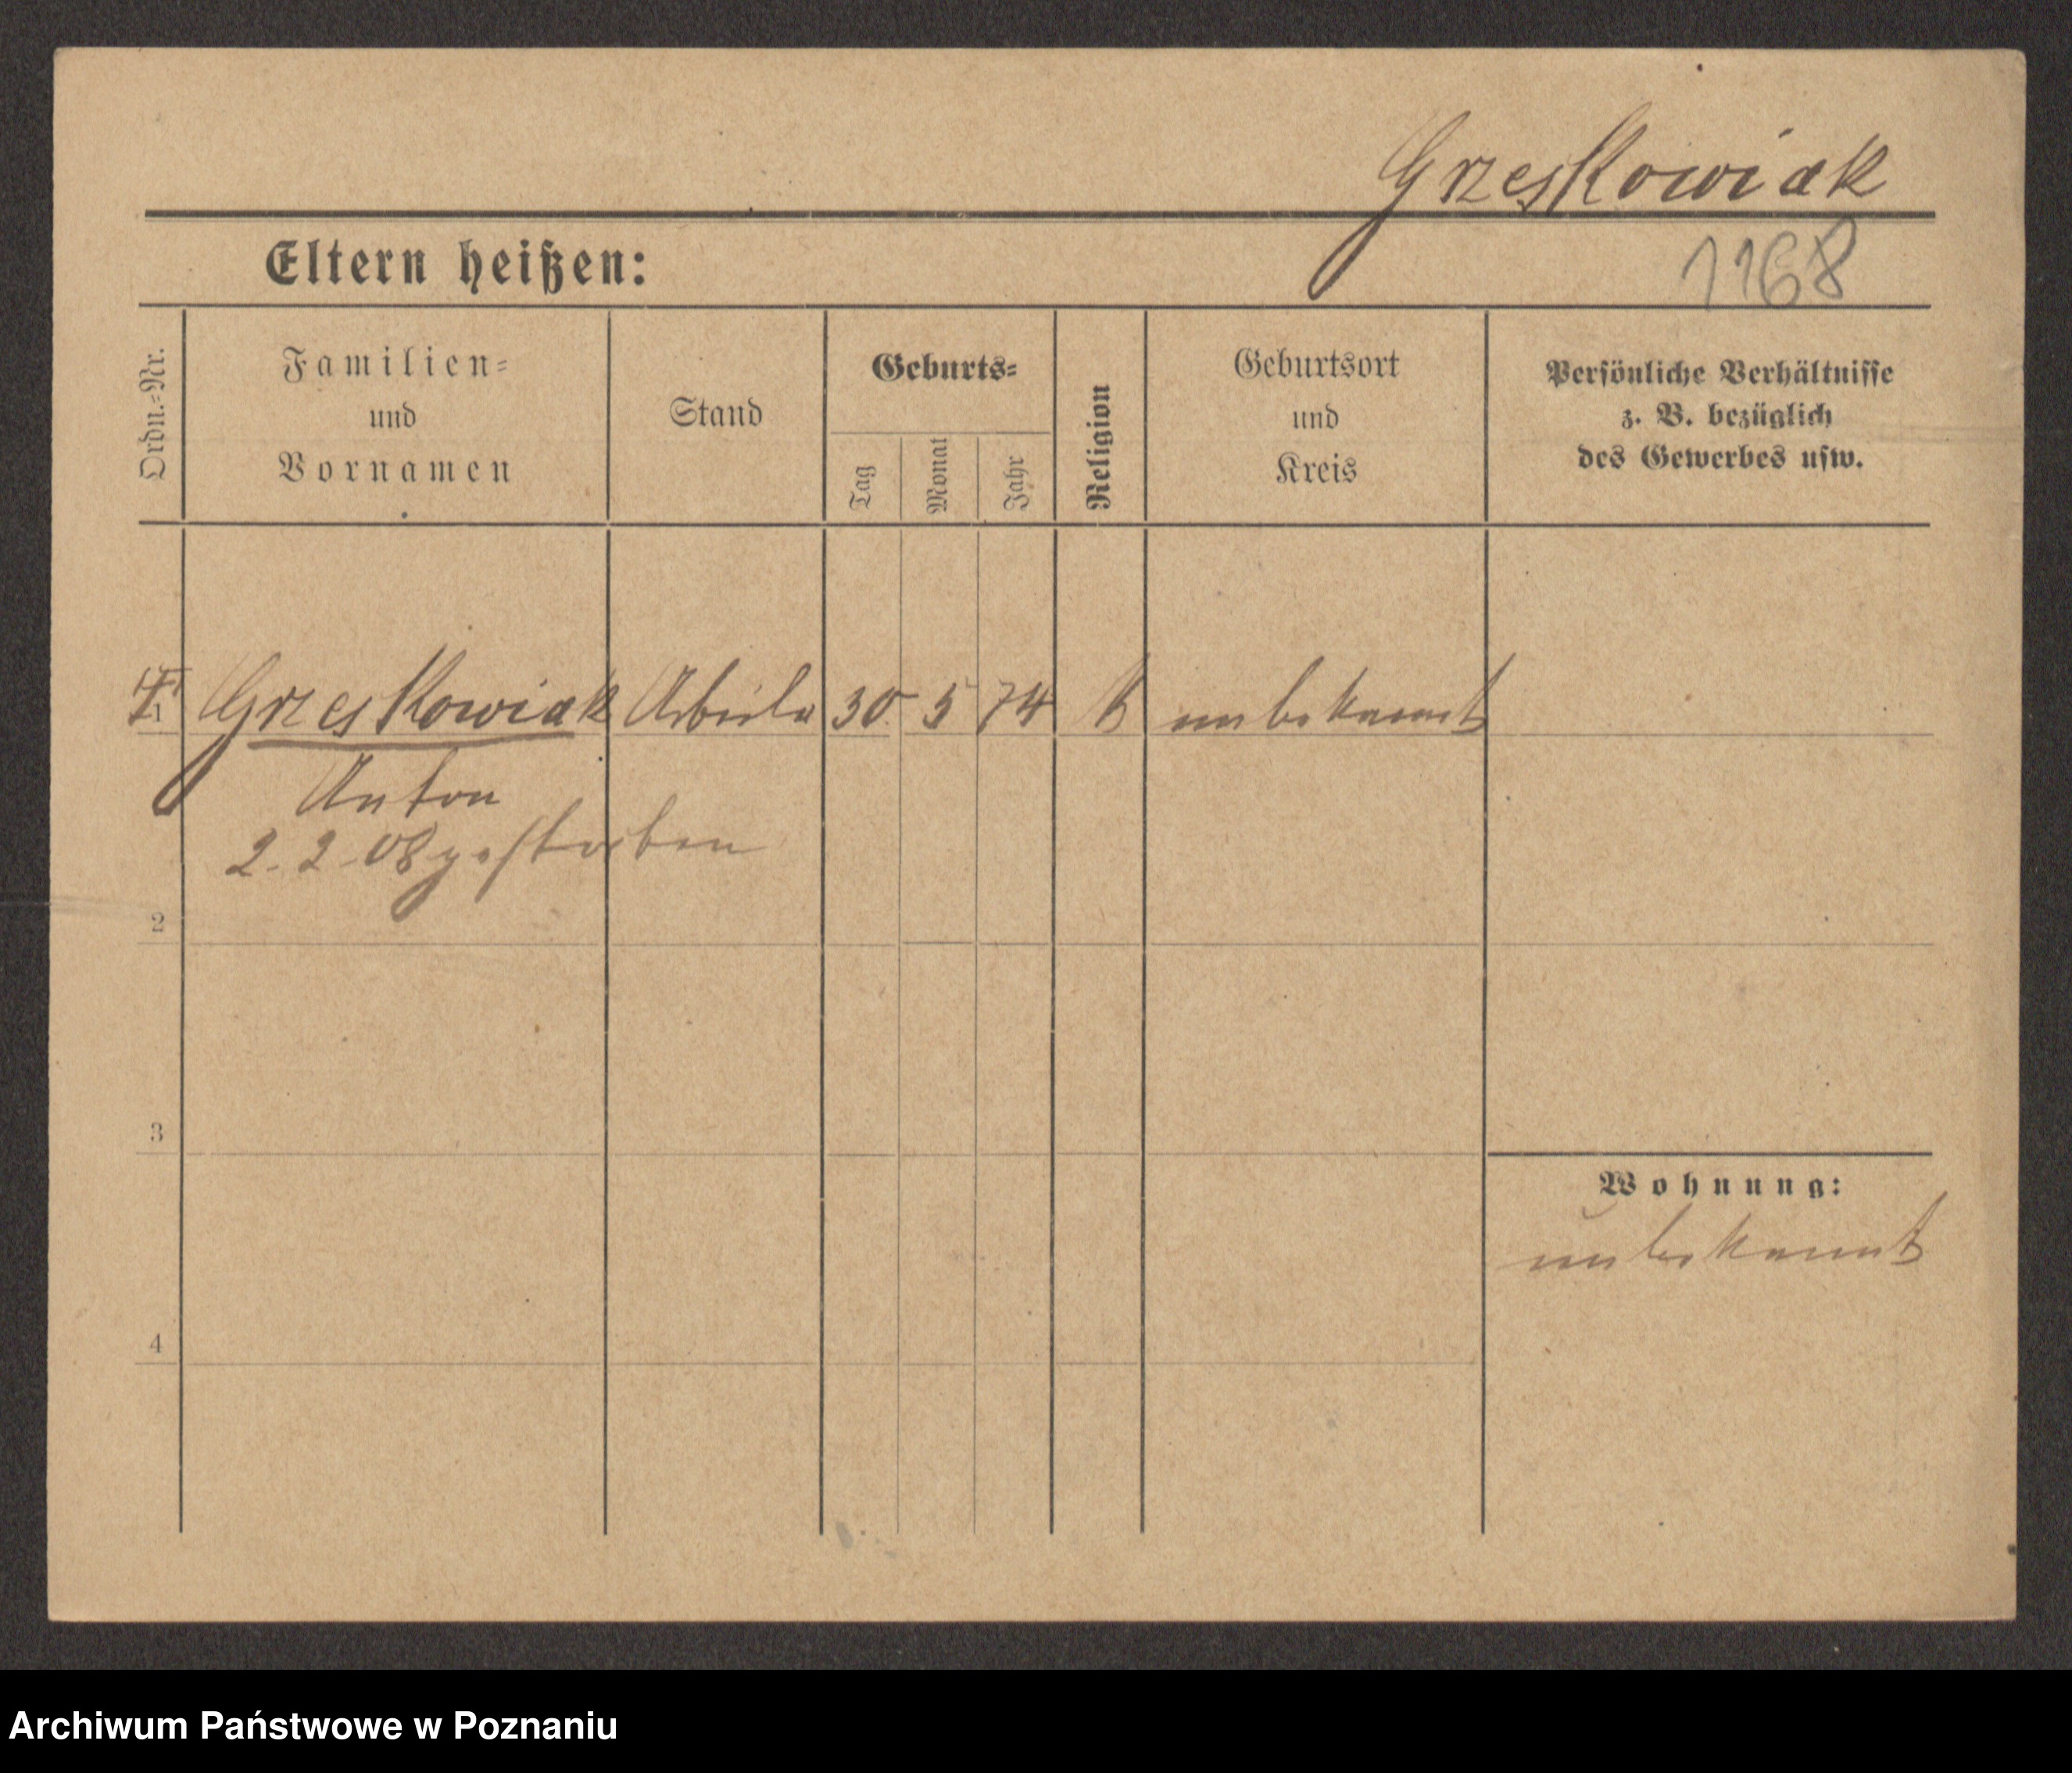 Grzeskowiak
Eltern heißen:
1168
Ordn.-Nr.
Familien-
und
Vornamen
Stand
Geburts-
Tag
Monat
Jahr
Religion
Geburtsort
und
Kreis
Persönliche Verhältnisse
z. B. bezüglich
des Gewerbes usw.
1 Grzeskowiak Arbeiter 30. 5 74 K unbekannt
Anton
2. 2. 08 gestorben
2
3
Wohnung:
unbekannt
4
Archiwum Państwowe w Poznaniu